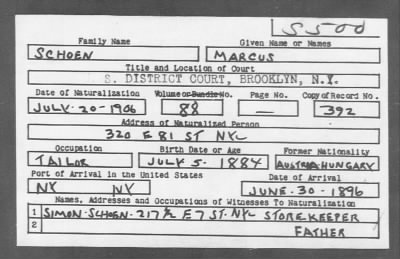 S500
Family Name Given Name or Names
SCHOEN MARCUS
Title and Location of Court
S. DISTRICT COURT, BROOKLYN, N.Y.
Date of Naturalization Volume or Bundle No. Page No. Copy of Record No.
JULY-20-1906 88 — 392
Address of Naturalized Person
320 E 81 ST NYC
Occupation Birth Date or Age Former Nationality
TAILOR JULY 5-1884 AUSTRIA-HUNGARY
Port of Arrival in the United States Date of Arrival
NY NY JUNE-30-1896
Names, Addresses and Occupations of Witnesses To Naturalization
1 SIMON-SCHOEN-217½ E 7 ST-NYC STOREKEEPER
2 FATHER